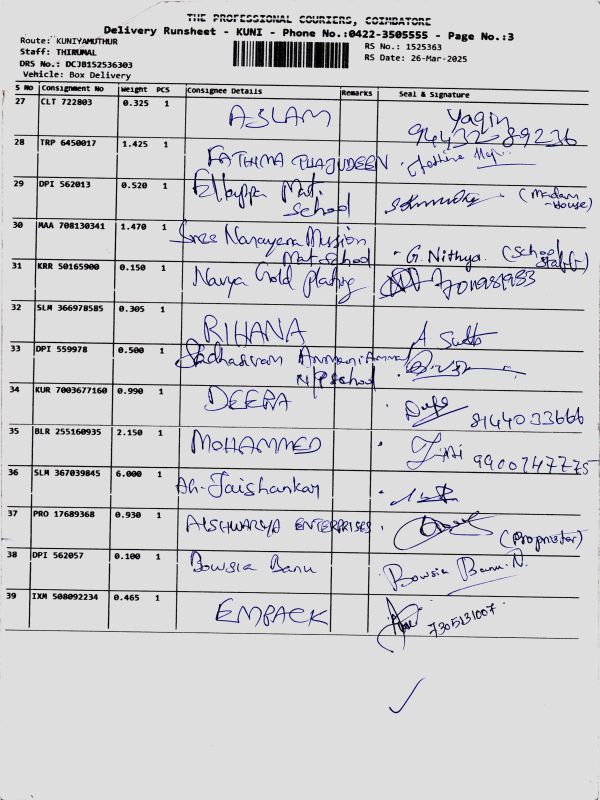 THE PROFESSIONAL COURIERS, COIMBATORE
Delivery Runsheet - KUNI - Phone No.:0422-3505555 - Page No.:3
Route: KUNIYAMUTHUR
RS No.: 1525363
Staff: THIRUMAL
RS Date: 26-Mar-2025
DRS No.: DCJB152536303
Vehicle: Box Delivery
S No Consignment No Weight PCS Consignee Details Remarks Seal & Signature
27 CLT 722803 0.325 1 ASLAM Yaqin
94432 89236
28 TRP 6450017 1.425 1 FATHIMA THAJUDEEN
29 DPI 562013 0.520 1 Ellappa Mat. School (Madam House)
30 MAA 708130341 1.470 1 Sree Narayana Mission Mat School G. Nithya. (School Staff)
31 KRR 50165900 0.150 1 Navya Gold Plating
32 SLM 366978585 0.305 1 RIHANA
33 DPI 559978 0.500 1 Sadhasivam Ammani Ammal N/P School
34 KUR 7003677160 0.990 1 DEERA 8144033666
35 BLR 255160935 2.150 1 MOHAMMED 9900747775
36 SLM 367039845 6.000 1 Ah-Jaishankar
37 PRO 17689368 0.930 1 AISHWARYA ENTERPRISES (Proprietor)
38 DPI 562057 0.100 1 Bowsia Banu Bowsia Banu.N.
39 IXM 508092234 0.465 1 EMPACK 7305131007